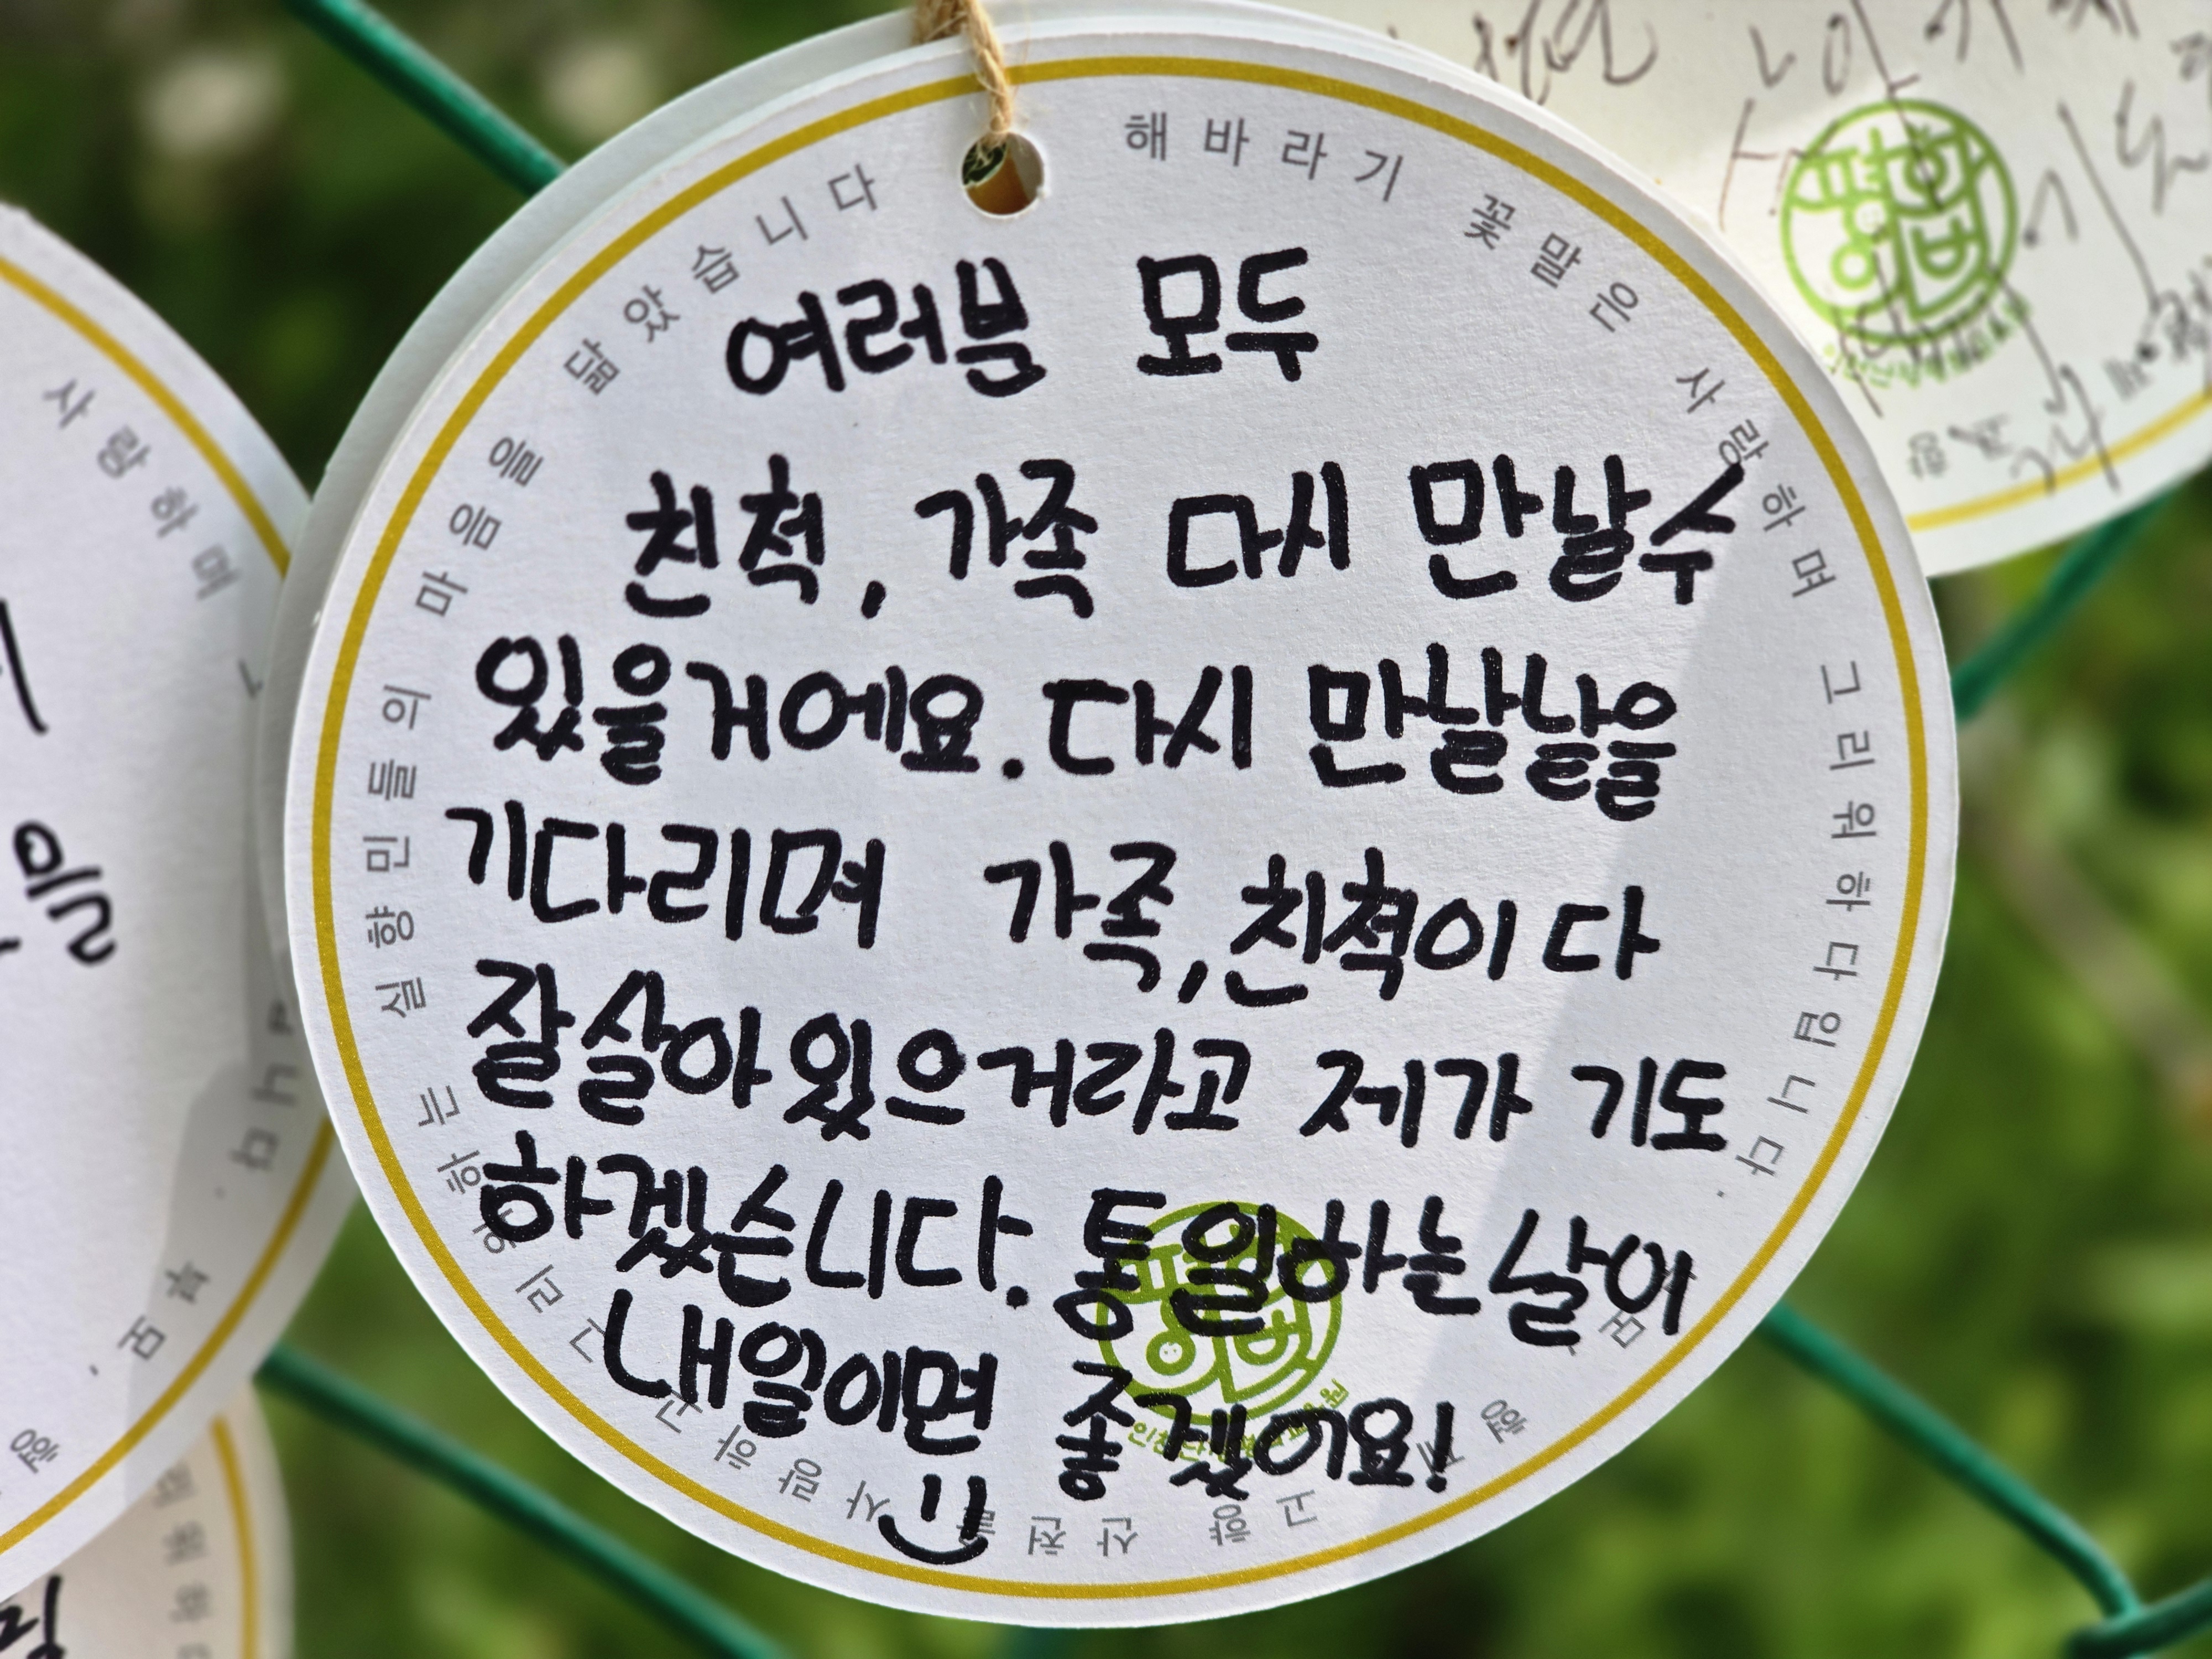 해바라기 꽃말은 사랑하며 그리워하다입니다.
고향 산천을 사랑하고 그리워하는 실향민들의 마음을 닮았습니다
여러분 모두
친척, 가족 다시 만날수
있을거에요. 다시 만날날을
기다리며 가족,친척이 다
잘살아있으거라고 제가 기도
하겠습니다. 통일하는날이
내일이면 좋겠어요!
평화
사랑하며